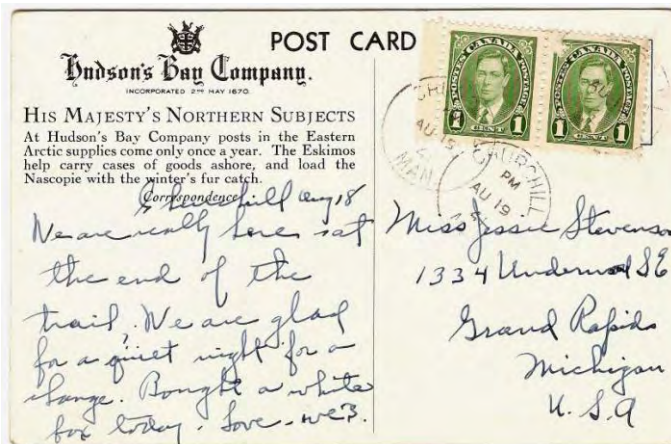 POST CARD
Hudson's Bay Company.
INCORPORATED 2ND MAY 1670.
HIS MAJESTY'S NORTHERN SUBJECTS
At Hudson's Bay Company posts in the Eastern
Arctic supplies come only once a year. The Eskimos
help carry cases of goods ashore, and load the
Nascopie with the winter's fur catch.
Correspondence
Churchill Aug 18
We are really here at
the end of the
trail. We are glad
for a quiet night for a
change. Bought a white
fox today. Love
POSTES CANADA POSTAGE
1 CENT 1
POSTES CANADA POSTAGE
1 CENT 1
AU 19
MAN.
CHURCHILL
PM
AU 19
Miss Jessie Stevenson
1334 Underwood S E
Grand Rapids
Michigan
U. S. A